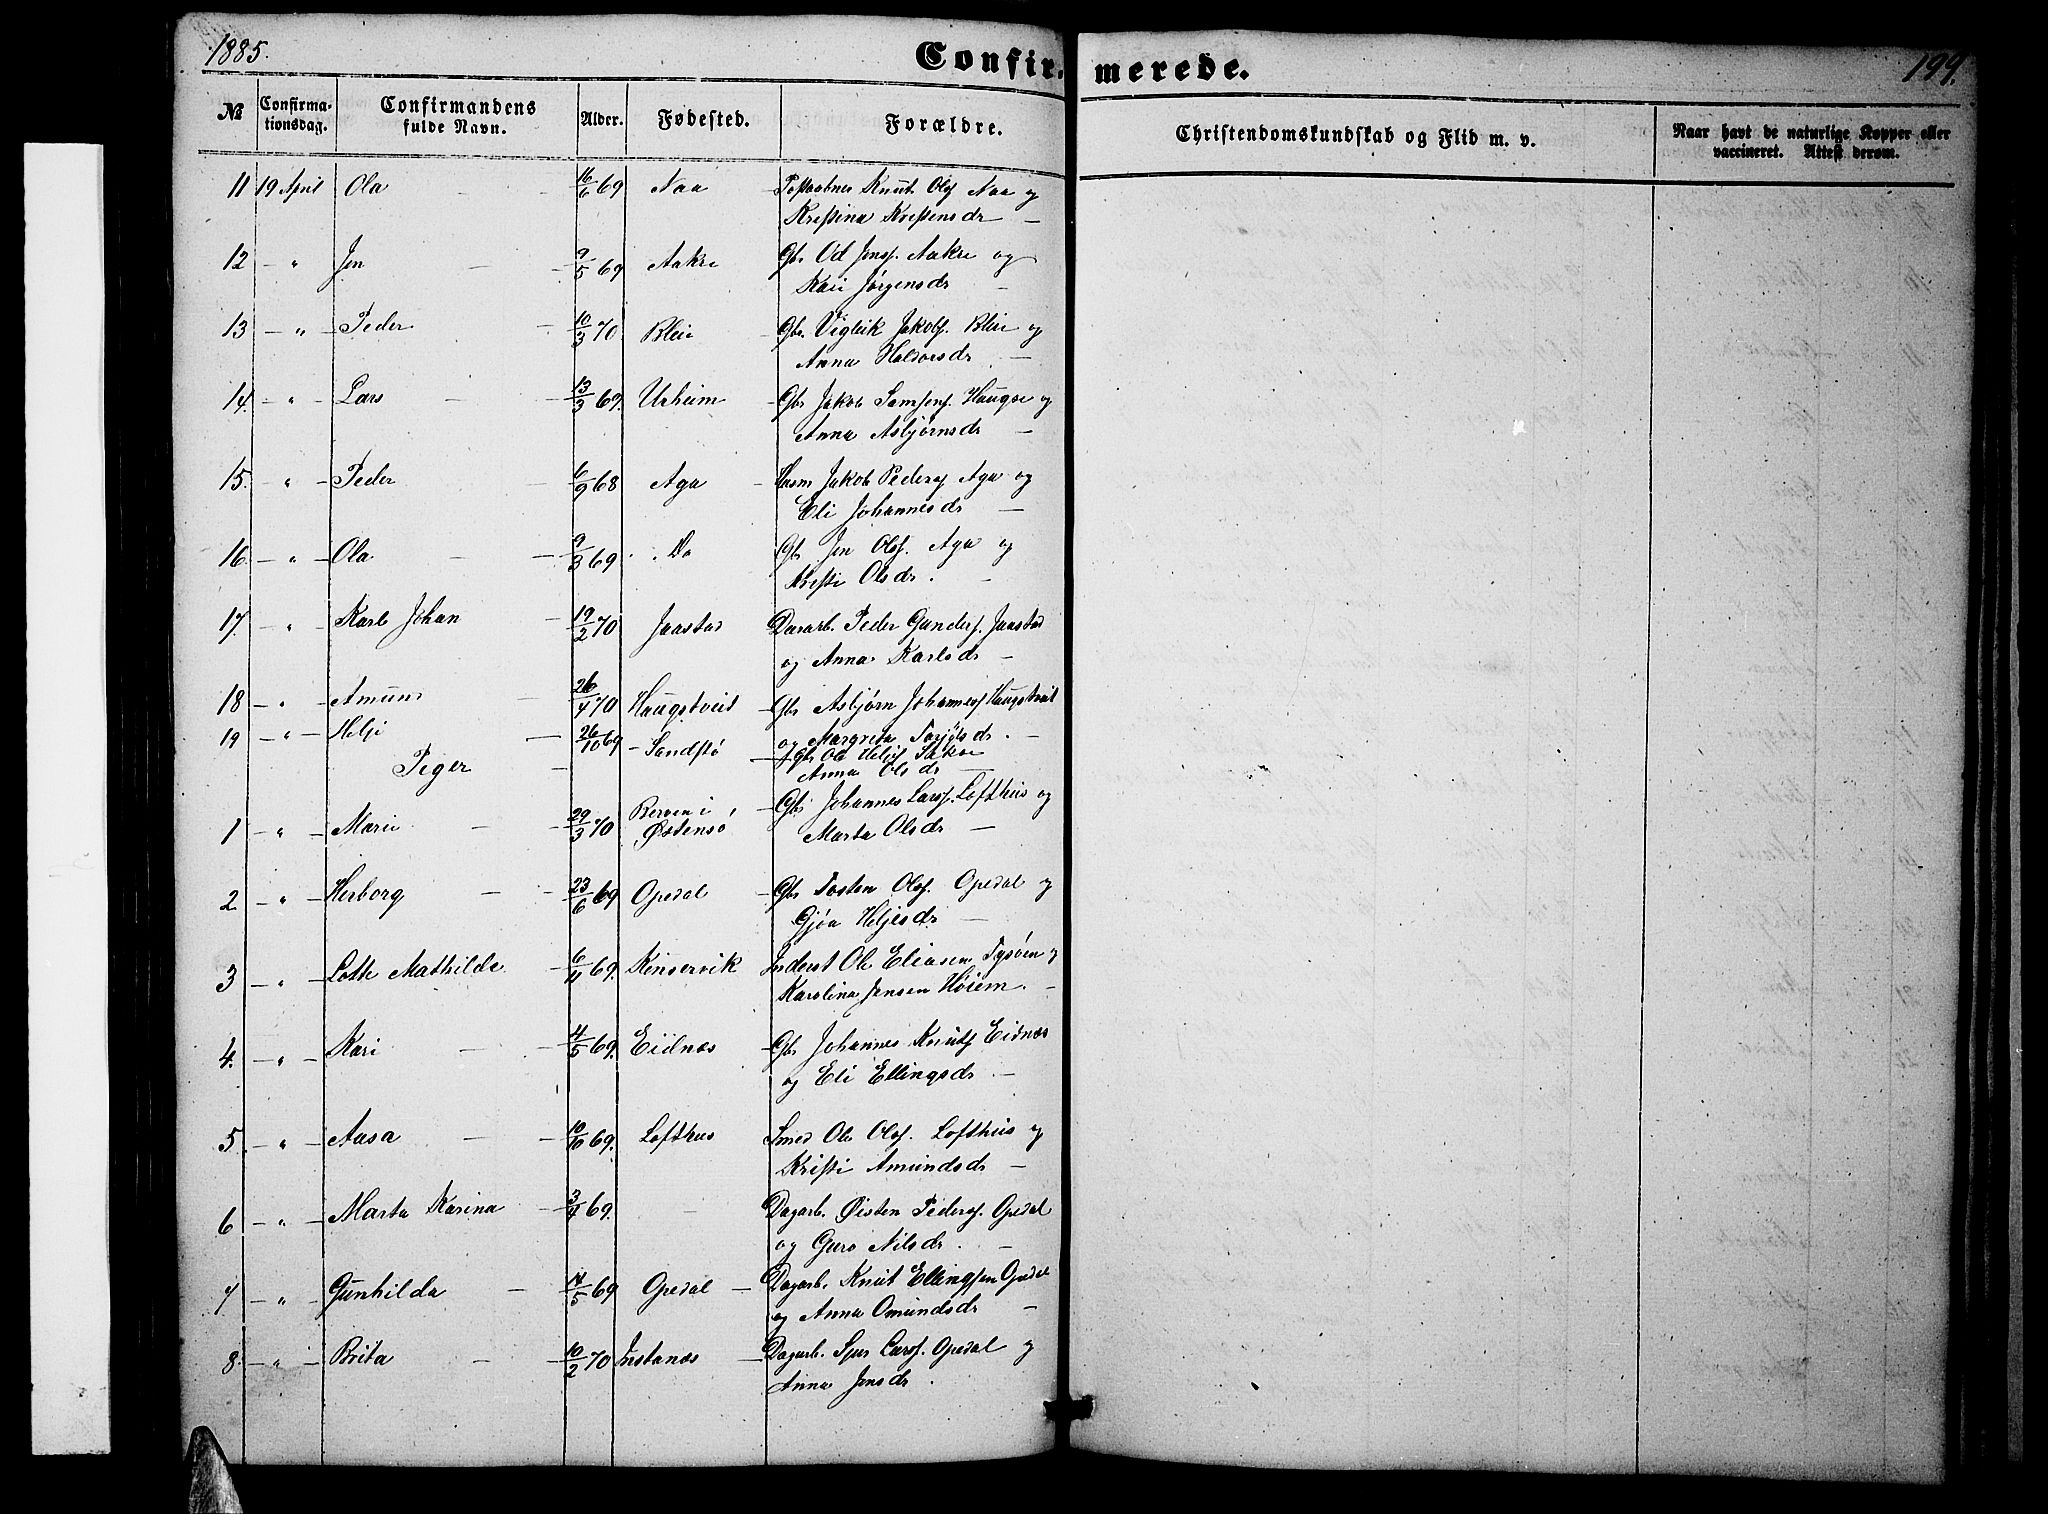 1885.
Confirmerede.
199.
№ Confirmationsdag. Confirmandens fulde Navn. Alder. Fødested. Forældre. Christendomskundskab og Flid m. v. Naar havt de naturlige Kopper eller vaccineret. Attest derom.
11 19 April Ola — 16/6 69 Naa — Knut Ols. Naa og
Kristina Kristensdr —
12 — " Jon — 9/5 69 Aakre Gbr Od Jons. Aakre og
Kari Jørgensdr —
13 — " — Peder — 10/3 70 Bleie — Gbr. Vigleik Jakobs. Bleie og
Anna Haldorsdr —
14. — " — Lars — 13/3 69. Urheim — Gbr Jakob Samsons. Haugse og
Anna Asbjørnsdr —
15. — " — Peder — 6/9 68 Aga — Husm Jakob Peders Aga og
Eli Johannesdr —
16. — " — Ola — 9/3 69 Do Gbr Jon Ols. Aga og
Kristi Olsdr. —
17. — " — Karl Johan — 19/2 70 Jaastad Dagarb. Peder Gunders. Jaastad
og Anna Karlsdr —
18 — " — Amund — 26/4 70 Haugstveit — Gbr Asbjørn Johannes Haugstveit
og Margreta Torjølsdr. —
19 — " — Helje — 26/10 69 — Sandstø — Gbr Ola Heljes
Anna Olsdr —
Piger —
1 — " — Mari — 29/3 70 Berven i Østensø — Gbr Johannes Lars. Lofthus og
Marta Olsdr —
2 — " — Herborg — 23/6 69 Opedal — Gbr Tosten Ols. Opedal og
Gjøa Heljesdr. —
3 — " — Lotte Mathilde — 6/11 69. Kinservik Inderst Ole Eliasen Tysøen og
Karolina Jensen Høiem. —
4. — " — Kari — 4/5 69. Eidnæs — Gbr Johannes Knuts Eidnæs
og Eli Ellingsdr. —
5. — " — Aasa — 10/10 69. Lofthus Smed Ole Ols. Lofthus og
Kristi Amundsdr —
6 — " — Marta Karina — 3/4 69. — Dagarb. Øisten Peders. Opedal
og Guro Nilsdr. —
7 — " — Gunhilda — 14/5 69 Opedal — Dagarb. Knut Ellingsen Opedal
og Anna Omundsdr —
8. — " — Brita — 10/2 70 Instanæs — Dagarb. Sjur Lars. Opedal og
Anna Jonsdr.